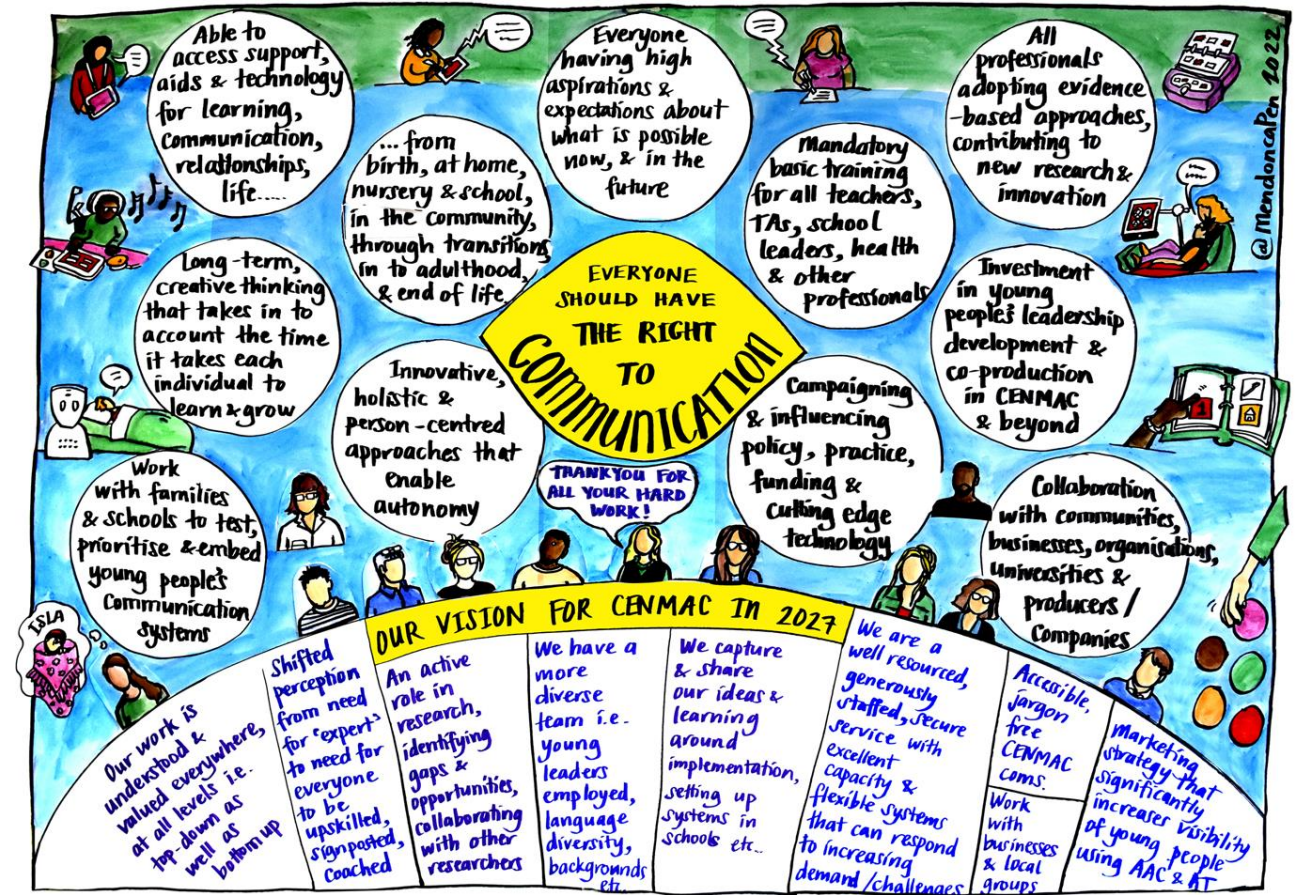 Able to
access support,
aids & technology
for learning,
communication,
relationships,
life.....
... from
birth, at home,
nursery & school,
in the community,
through transitions
in to adulthood,
& end of life
Everyone
having high
aspirations &
expectations about
what is possible
now, & in the
future
Mandatory
basic training
for all teachers,
TAs, school
leaders, health
& other
professionals
All
professionals
adopting evidence
-based approaches,
contributing to
new research &
innovation
@MendoncaPen 2022
Long-term,
creative thinking
that takes in to
account the time
it takes each
individual to
learn & grow
Innovative,
holistic &
person-centred
approaches that
enable
autonomy
EVERYONE
SHOULD HAVE
THE RIGHT
TO
COMMUNICATION
Campaigning
& influencing
policy, practice,
funding &
cutting edge
technology
Investment
in young
people's leadership
development &
co-production
in CENMAC
& beyond
Work
with families
& schools to test,
prioritise & embed
young people's
Communication
systems
THANKYOU FOR
ALL YOUR HARD
WORK!
Collaboration
with communities,
businesses, organisations,
universities &
producers/
Companies
ISLA
1
OUR VISION FOR CENMAC IN 2027
Our work is
understood &
valued everywhere,
at all levels i.e.
top-down as
well as
bottom up
Shifted
perception
from need
for 'expert'
to need for
everyone
to be
upskilled,
signposted,
coached
An active
role in
research,
identifying
gaps &
opportunities,
collaborating
with other
researchers
We have a
more
diverse
team i.e.
young
leaders
employed,
language
diversity,
backgrounds
etc.
We capture
& share
our ideas &
learning
around
implementation,
setting up
systems in
schools etc..
We are a
well resourced,
generously
staffed, secure
service with
excellent
capacity &
flexible systems
that can respond
to increasing
demand/challenges
Accessible,
jargon
free
CENMAC
coms.
Work
with
businesses
& local
groups
Marketing
strategy that
significantly
increases visibility
of young people
using AAC & AT